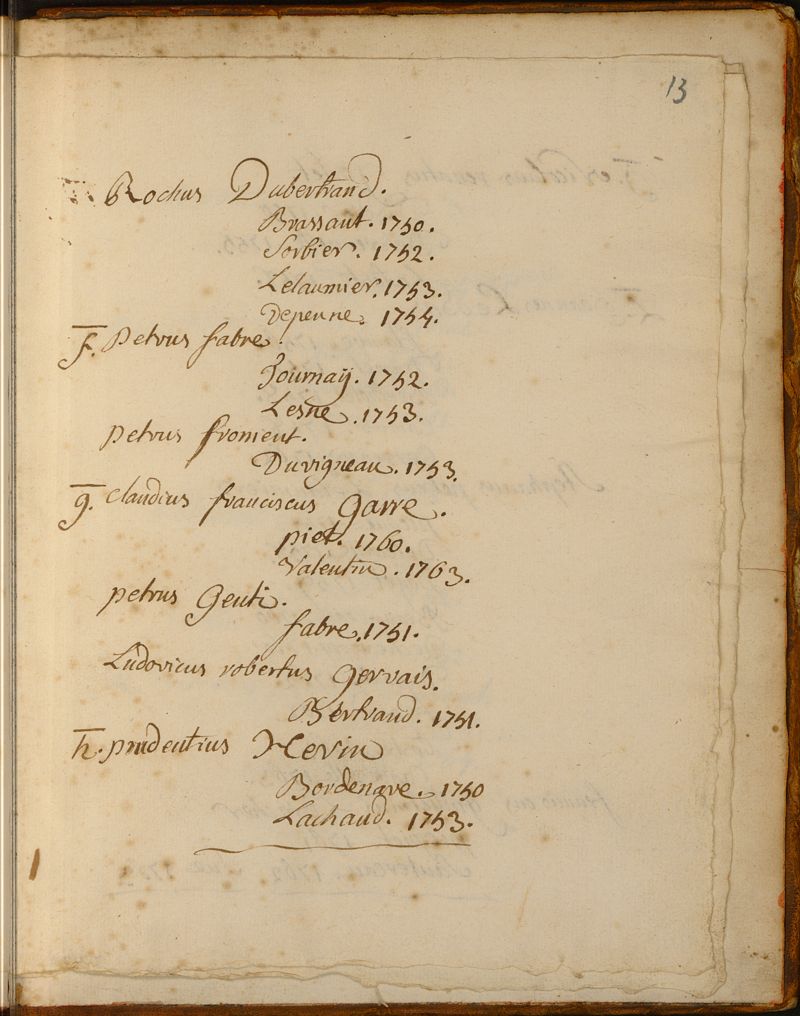 13
Rochus Dubertrand.
Brassaut. 1750.
Sorbier. 1752.
Lelaumier. 1753.
Depenne. 1754.
f. Petrus fabre.
Journaÿ. 1752.
Lesne. 1753.
petrus froment.
Duvigneau. 1753.
g. Claudius franciscus Garre.
piet. 1760.
Valentin. 1763.
petrus Genti.
fabre. 1751.
Ludovicus robertus Gervais.
Bertrand. 1751.
h. prudentius Hevin
Bordenave. 1750
Lachaud. 1753.